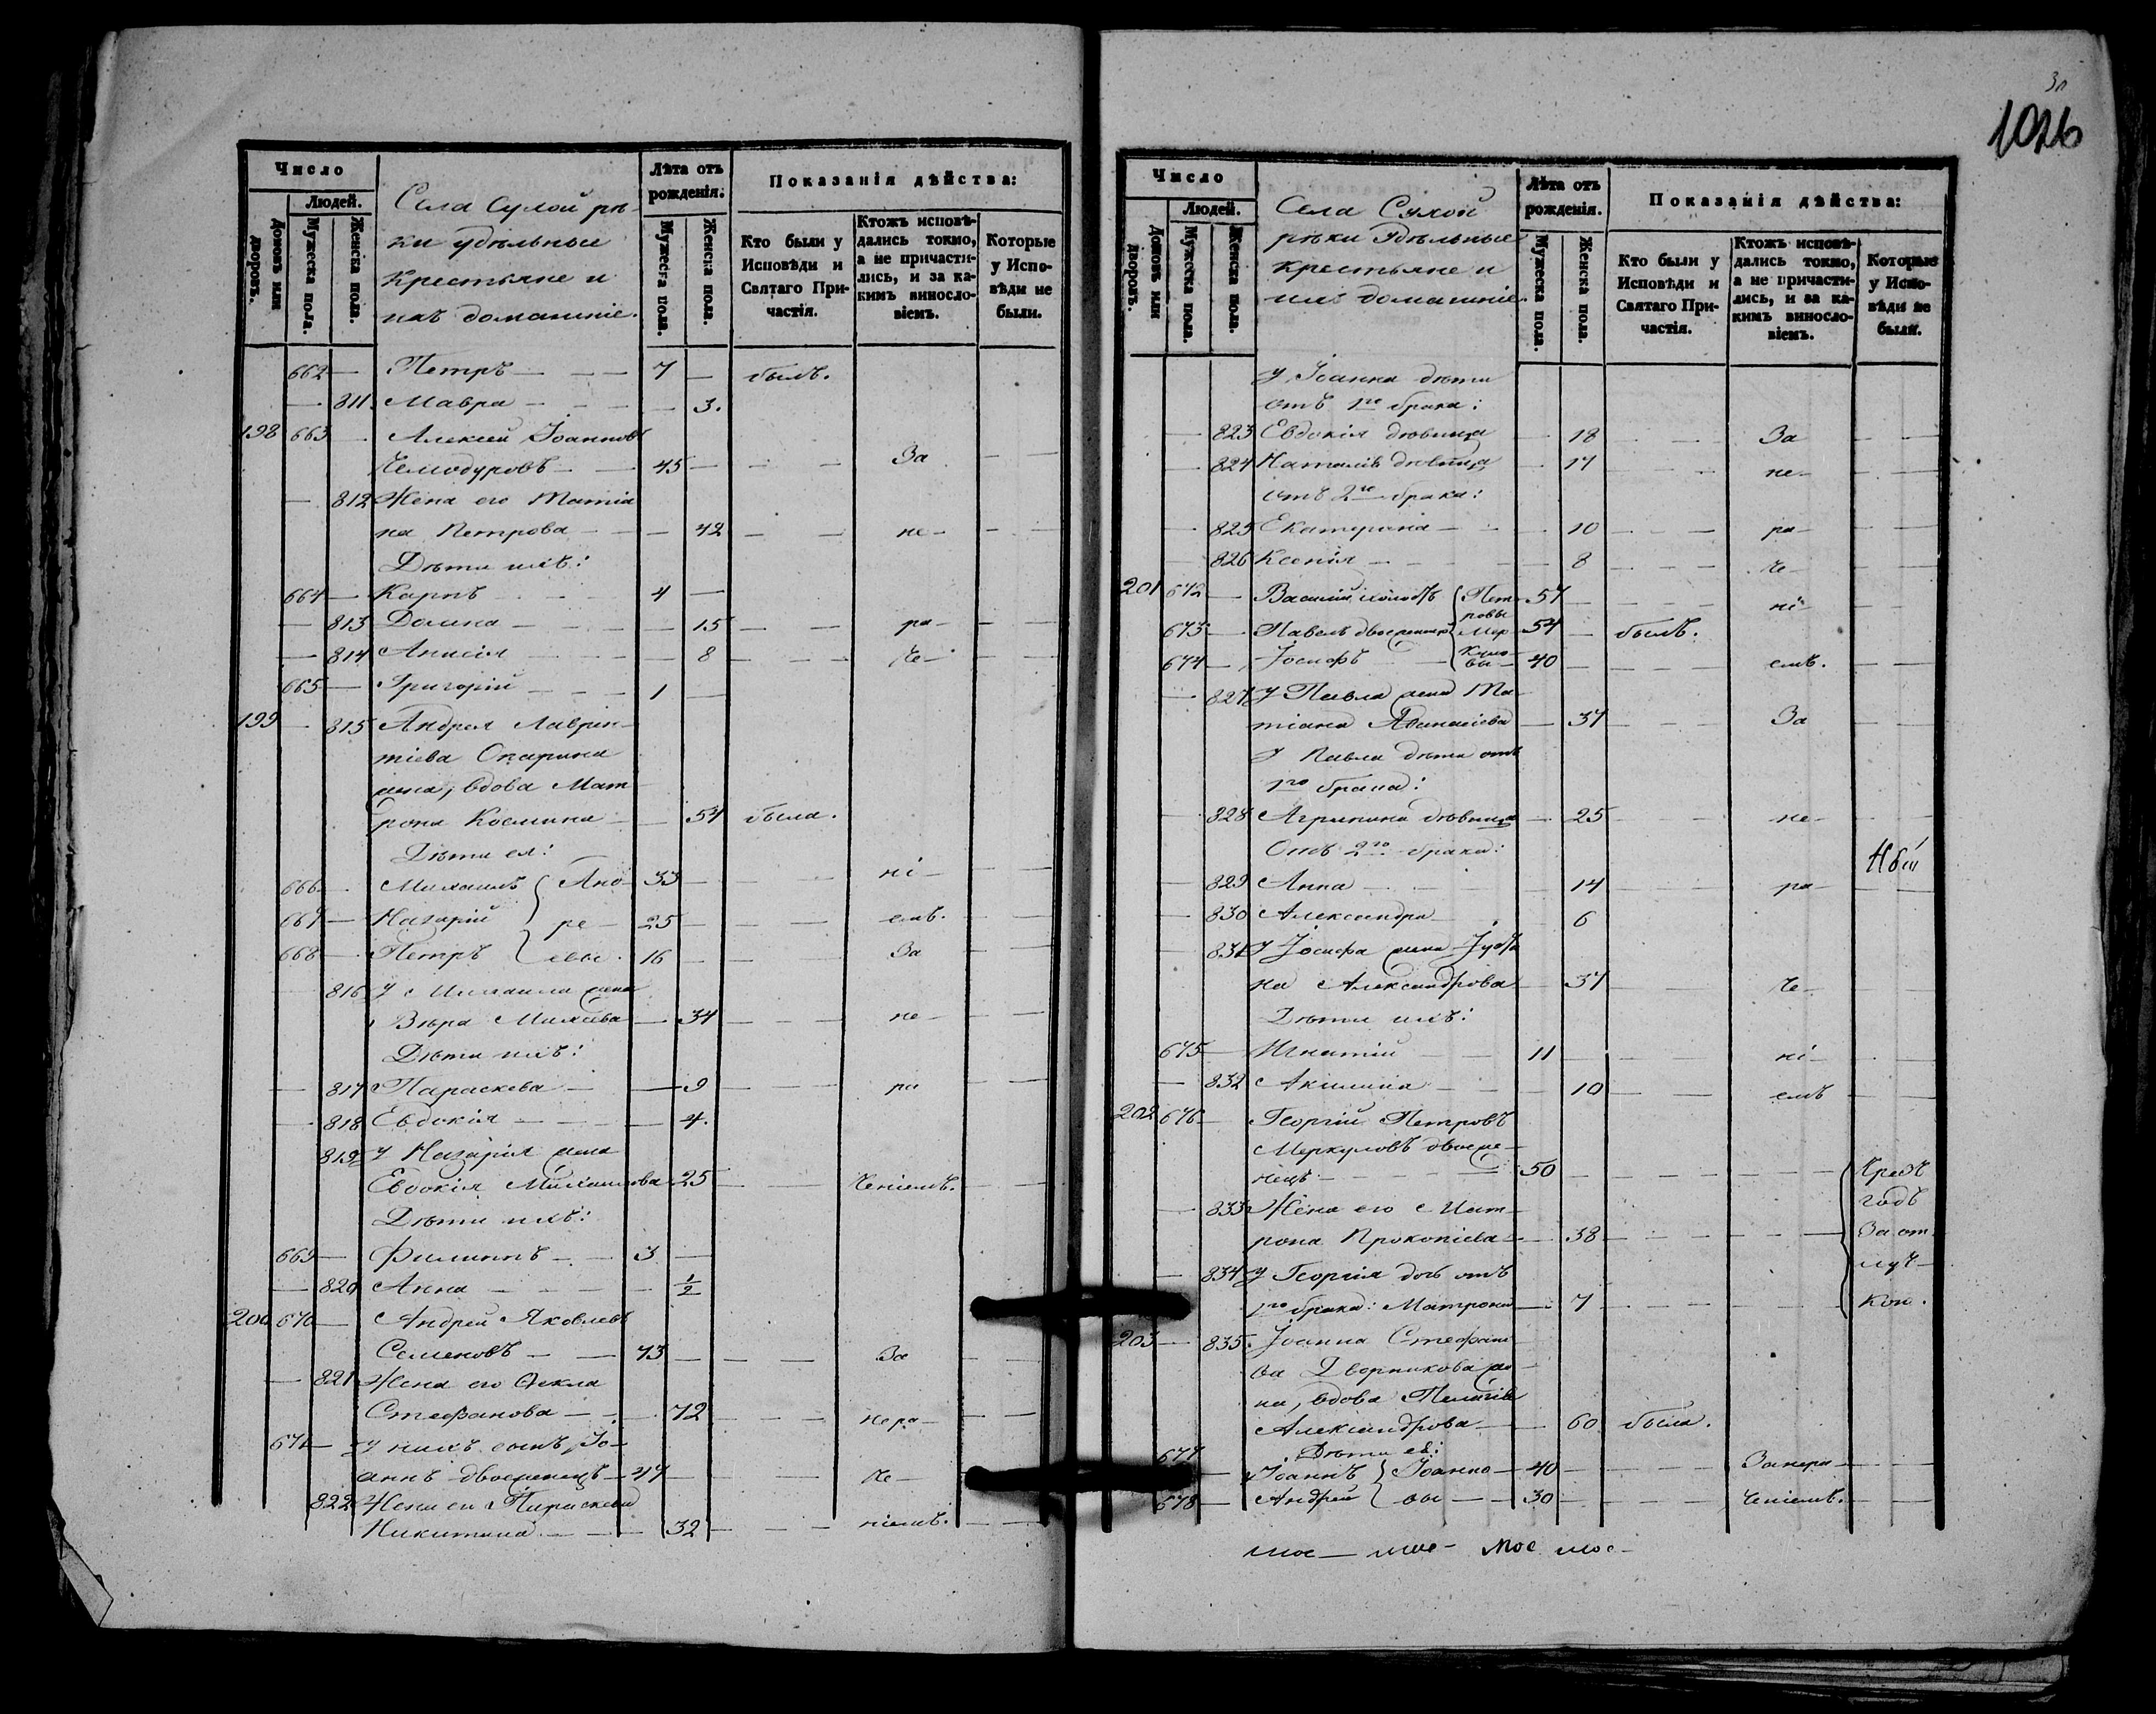 Число
Людей.
Домовъ или дворовъ.
Мужеска пола.
Женска пола.
Села Сухой рѣ-
ки удѣльные
Крестьяне и
ихъ домашніе.
Лѣта отъ рожденія.
Мужеска пола.
Женска пола.
Показанія дѣйства:
Кто были у Исповѣди и Святаго Причастія.
Ктожъ исповѣдались токмо, а не причастились, и за какимъ винословіемъ.
Которые у Исповѣди не были.
662 — Петръ — — — 7 — былъ.
— 811 Мавра — — — 3.
198 663 — Алексей Іоанновъ
Чемодуровъ — — 45 — — — За — —
— 812 Жена его Татіа
на Петрова — — 42 — — не — — —
Дѣти ихъ:
664 — Карпъ — — 4 —
— 813 Домна — — — 15 — — ра — — —
— 814 Анисія — — — 8 — — — че — — —
665 — Григорій — — — 1 —
199 — 815 Андрея Лаврен-
тіева Окарина
жена, вдова Мат-
рона Космина — — 54 была.
Дѣти ея:
666 — Михаилъ { Анд- 33 — — — ні — — —
667 — Назарій } ре — 25 — — — емъ. — —
668 — Петръ { евы. 16 — — За — —
— 816 У Михаила жена
Вѣра Михеева — 34 — — — не — — —
Дѣти ихъ:
— 817 Параскева — — 9 — — ра — —
— 818 Евдокія — — — 4.
819 У Назарія жена
Евдокія Михаилова 25 — — Ченіемъ. — —
Дѣти ихъ:
669 — Филиппъ — — 3 —
— 820 Анна — — — 1/2
200 670 — Андрей Яковлевъ
Семеновъ — — 73 — — — За — —
— 821 Жена его Ѳекла
Стефанова — — 72 — — — нера — — —
671 — У нихъ сынъ Іо-
аннъ двоеженецъ — 47 — — — че — —
822 Жена его Параскева
Никитина — — — 32 — — — ніемъ. — —
1026
Число
Людей.
Домовъ или дворовъ.
Мужеска пола.
Женска пола.
Села Сухой
рѣки Удѣльные
крестьяне и
ихъ домашніе.
Лѣта отъ рожденія.
Мужеска пола.
Женска пола.
Показанія дѣйства:
Кто были у Исповѣди и Святаго Причастія.
Ктожъ исповѣдались токмо, а не причастились, и за какимъ винословіемъ.
Которые у Исповѣди не были.
У Іоанна дѣти
отъ 1го брака:
— 823 Евдокія дѣвица — 18 — — За — —
— 824 Наталія дѣвица — 17 — — не — — —
отъ 2го брака:
— 825 Екатерина — — 10 — — ра — — —
— 826 Ксенія — — — 8 — — — че — — —
201 672 — Василій холостъ { Пет- 57 — — — ні — —
ровы
673 — Павелъ двоеженецъ { Мер- 54 — былъ.
674 — Іосифъ — { куло-
вы — 40 — — — емъ. — —
— 827 У Павла жена Та-
тіана Аѳанасіева — 37 — — За — —
У Павла дѣти отъ
1го брака:
— 828 Агрипина дѣвица — 25 — — не — — —
Отъ 2го брака:
— 829 Анна — — 14 — — ра — — —
— 830 Александра — 6
— 831 У Іосифа жена
на Александрова — 37 — — че — —
Дѣти ихъ:
675 — Игнатій — — 11 — — — ні — —
— 832 Акилина — — — 10 — — емъ — —
202 676 — Георгій Петровъ
Меркуловъ двоеже-
нецъ — — — 50 — — — — — { Чрезъ
годъ
833 Жена его Мат-
рона Прокопіева — 38 — — — — — За от-
— 834 У Георгія дочь отъ
луч-
1го брака: Матрона — 7 — — — — — кою.
203 — 835 Іоанна Стефано-
ва Дворникова же-
на, вдова Пелагія
Александрова — — 60 была.
Дѣти ея:
677 — Іоаннъ } Іоанно — 40 — — — Занера — —
678 — Андрей { вы — — 30 — — — ченіемъ. — —